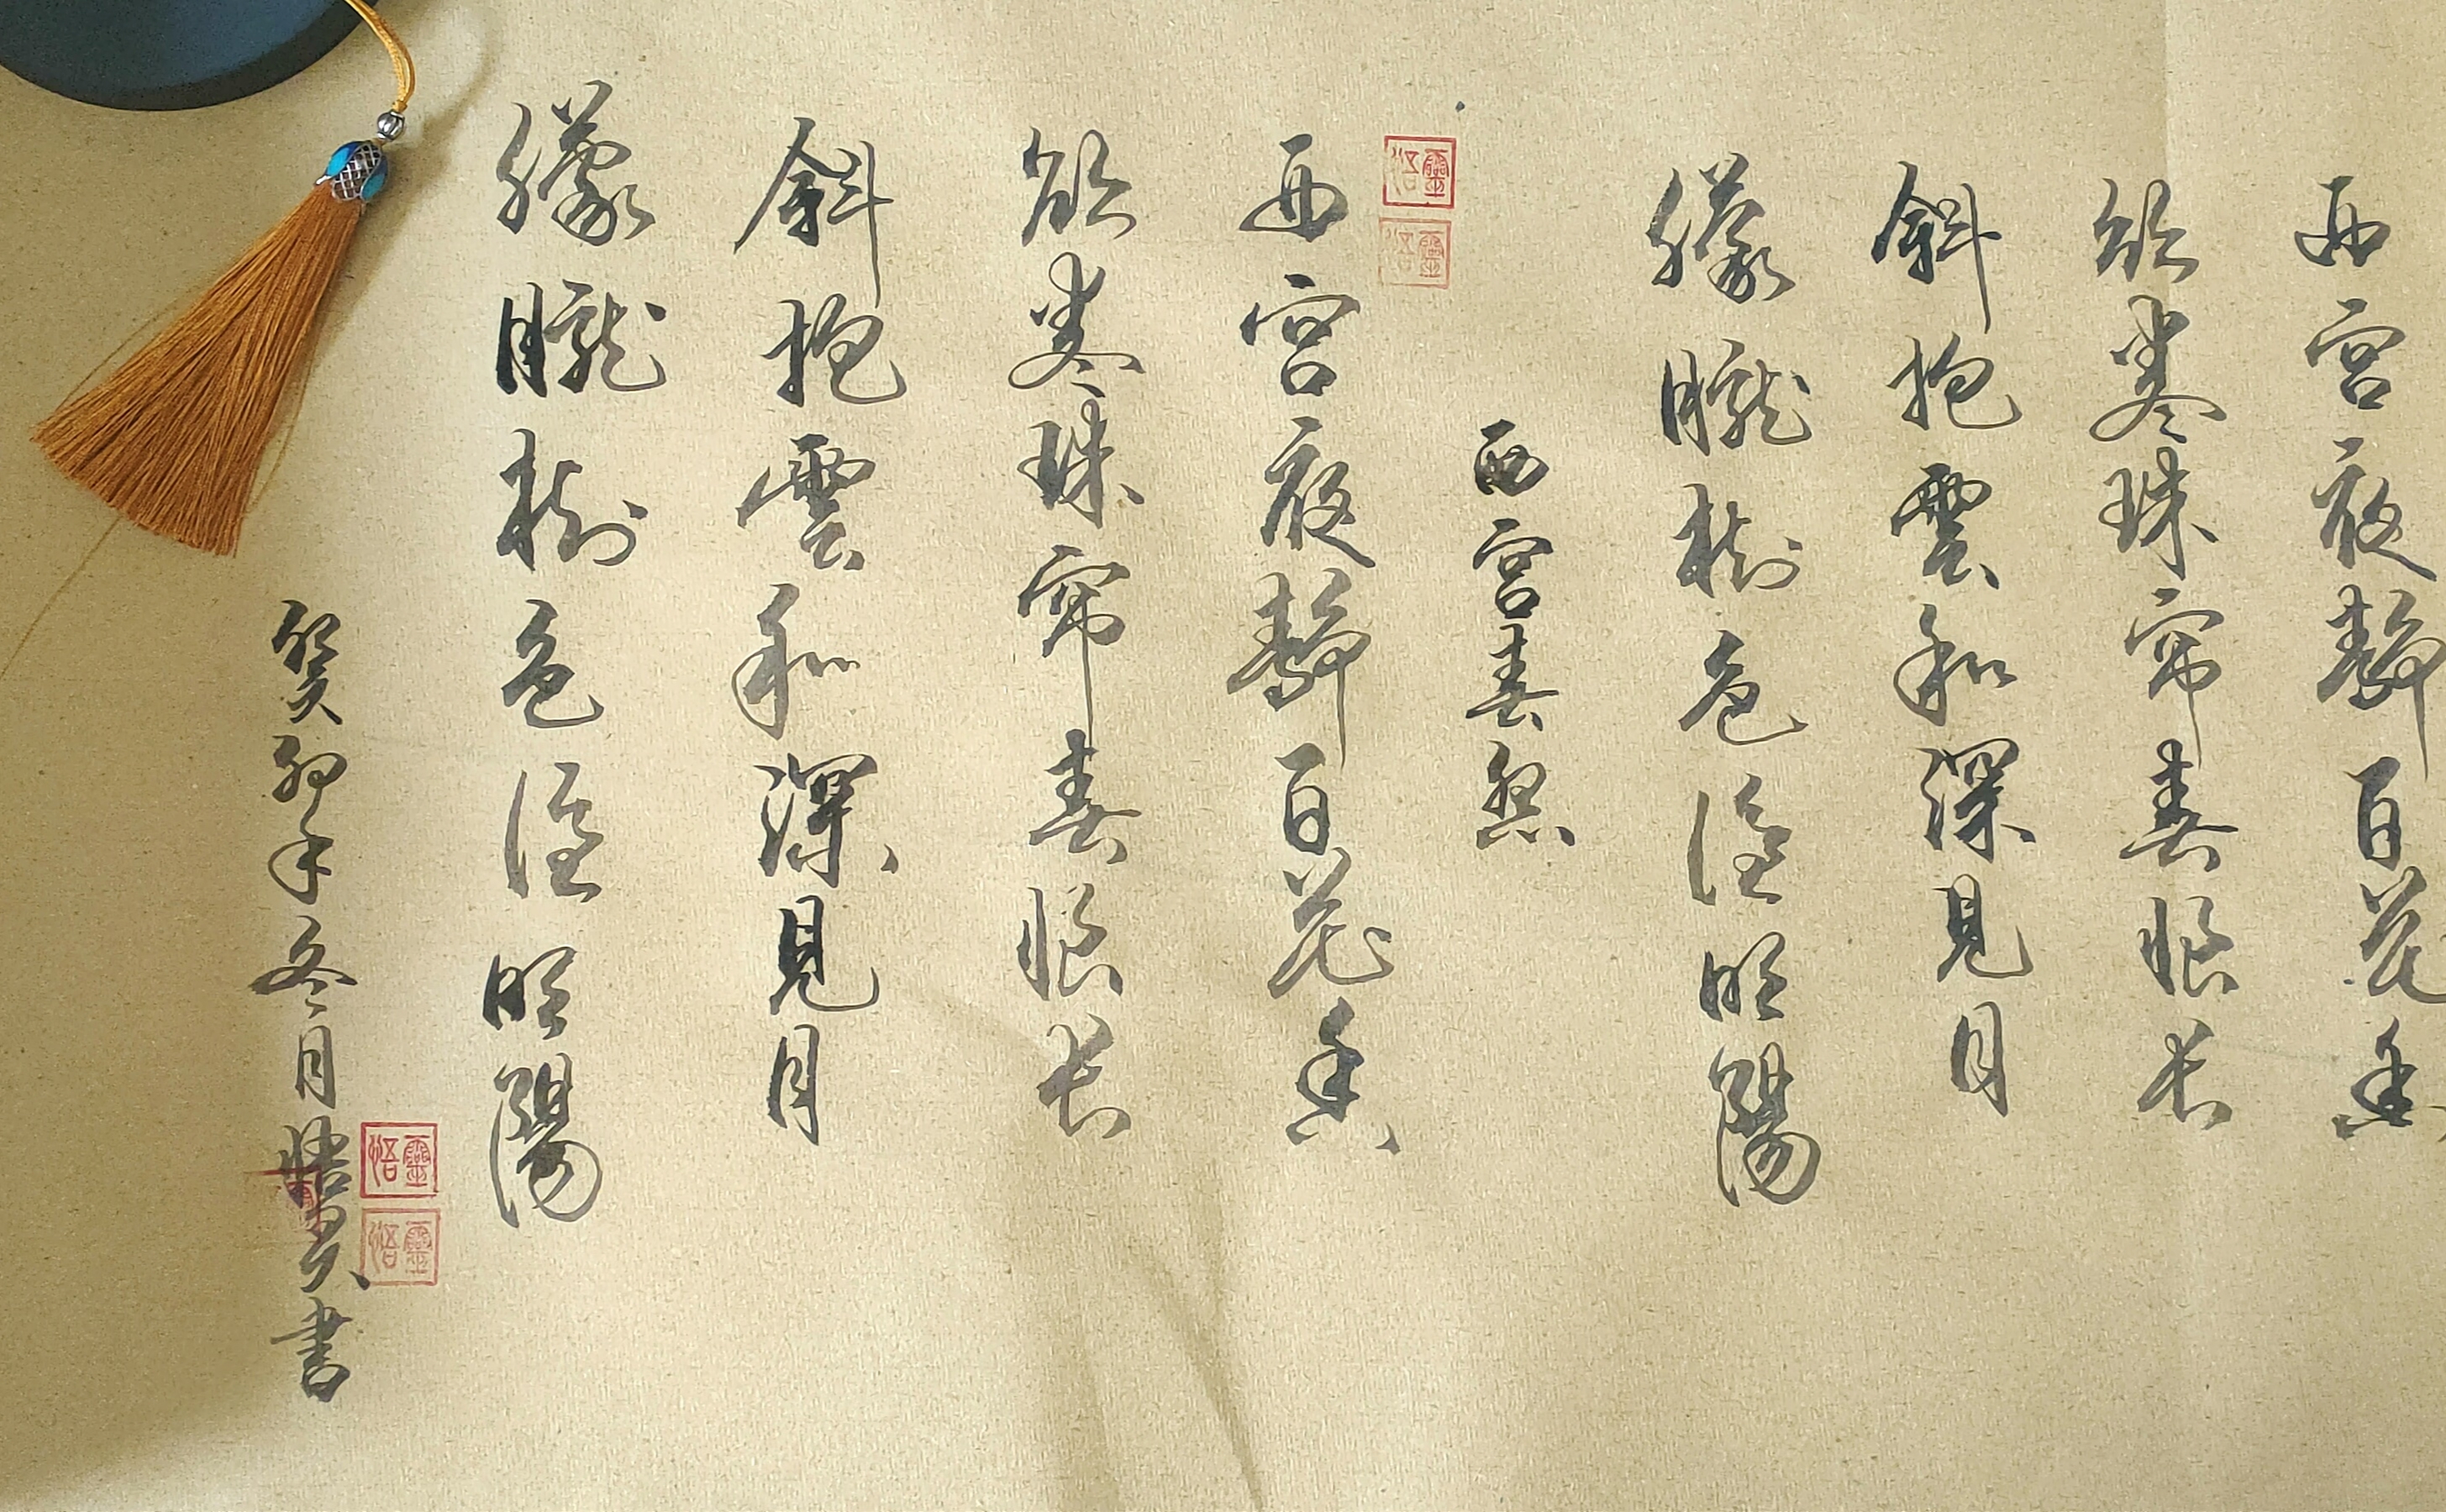 西宮夜靜百花香
欲卷珠帘春恨长
斜抱雲和深見月
朦朧樹色隱昭陽
西宮春怨
靈悟
靈悟
西宮夜靜百花香
欲卷珠帘春恨长
斜抱雲和深見月
朦朧樹色隱昭陽
癸卯年冬月
書
靈悟
靈悟